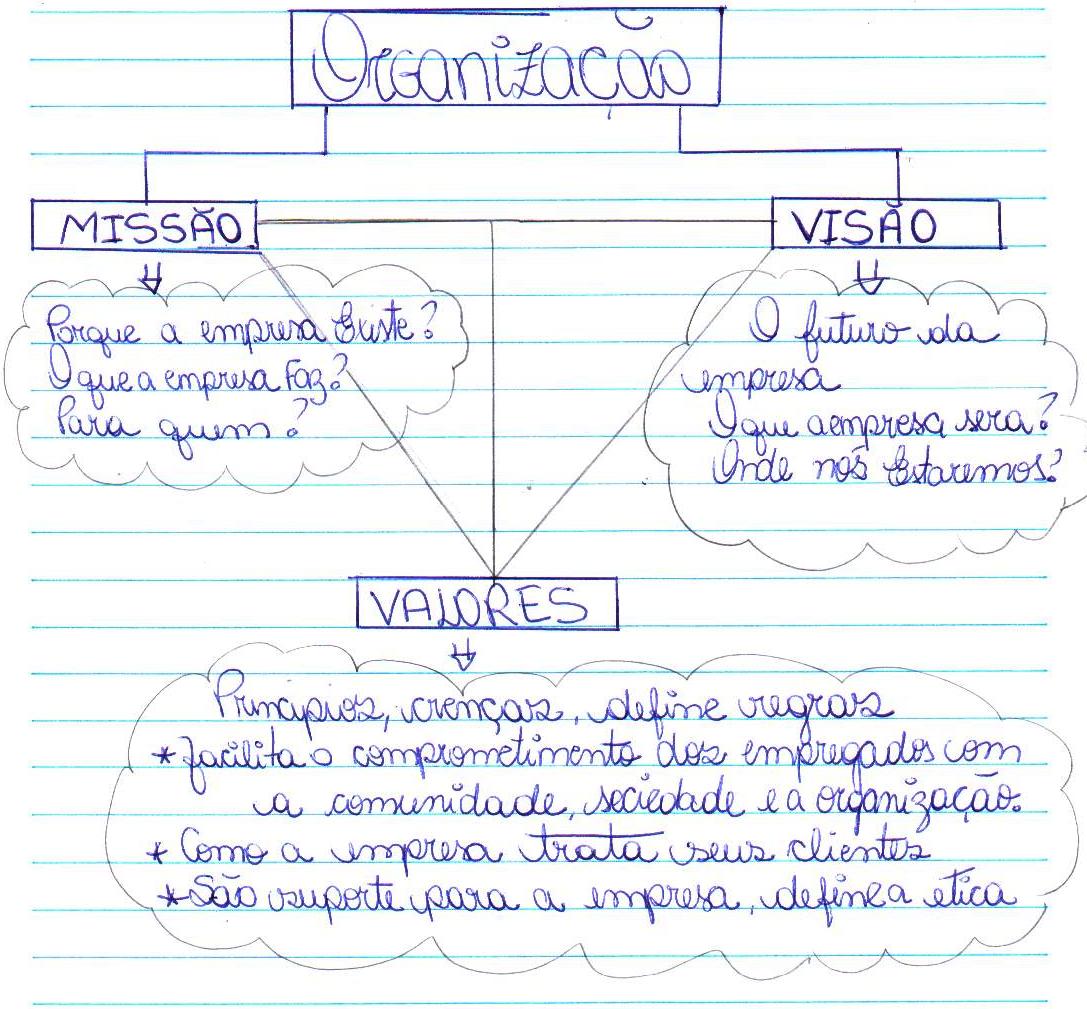 Organização
MISSÃO
VISÃO
Porque a empresa Existe?
O que a empresa Faz?
Para quem?
O futuro da
empresa
O que a empresa sera?
Onde nós Estaremos?
VALORES
Principios, crenças, define regras
* facilita o comprometimento dos empregados com
a comunidade, sociedade e a organização.
* Como a empresa trata seus clientes
* São suporte para a empresa, define a etica